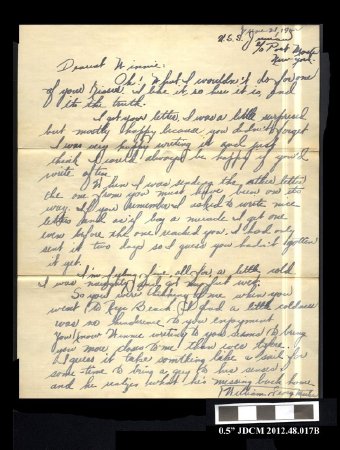 June 21, 19
U.S.S.
c/o Post Master
New York.
Dearest Winnie:
Oh! What I wouldn't do for one
of your kisses. I like it so here it is, and
it's the truth.
I got your letter, I was a little surprised
but mostly happy because you didn't forget
I was very happy writing it and just
think I would always be happy if you'd
write often.
When I was sending the other letter
the one from you must have been on its
way. If you remember I asked to wrote nice
letters and as if boy a miracle I got one
even before the one reached you. I had only
sent it two days so I guess you hadn't gotten
it yet.
I'm feeling fine all for a little cold
I was naughty and got my feet wet.
So you were thinking of me when you
went to Rye Beach, and a little coldness
was no hinderence to your enjoyment.
You know Winnie writing to you seems to bring
you more closer to me than ever before.
I guess it take something like a sail for
some time to bring a guy to his senses
and he realizes what his missing back home
William
0.5" JDCM 2012.48.017B